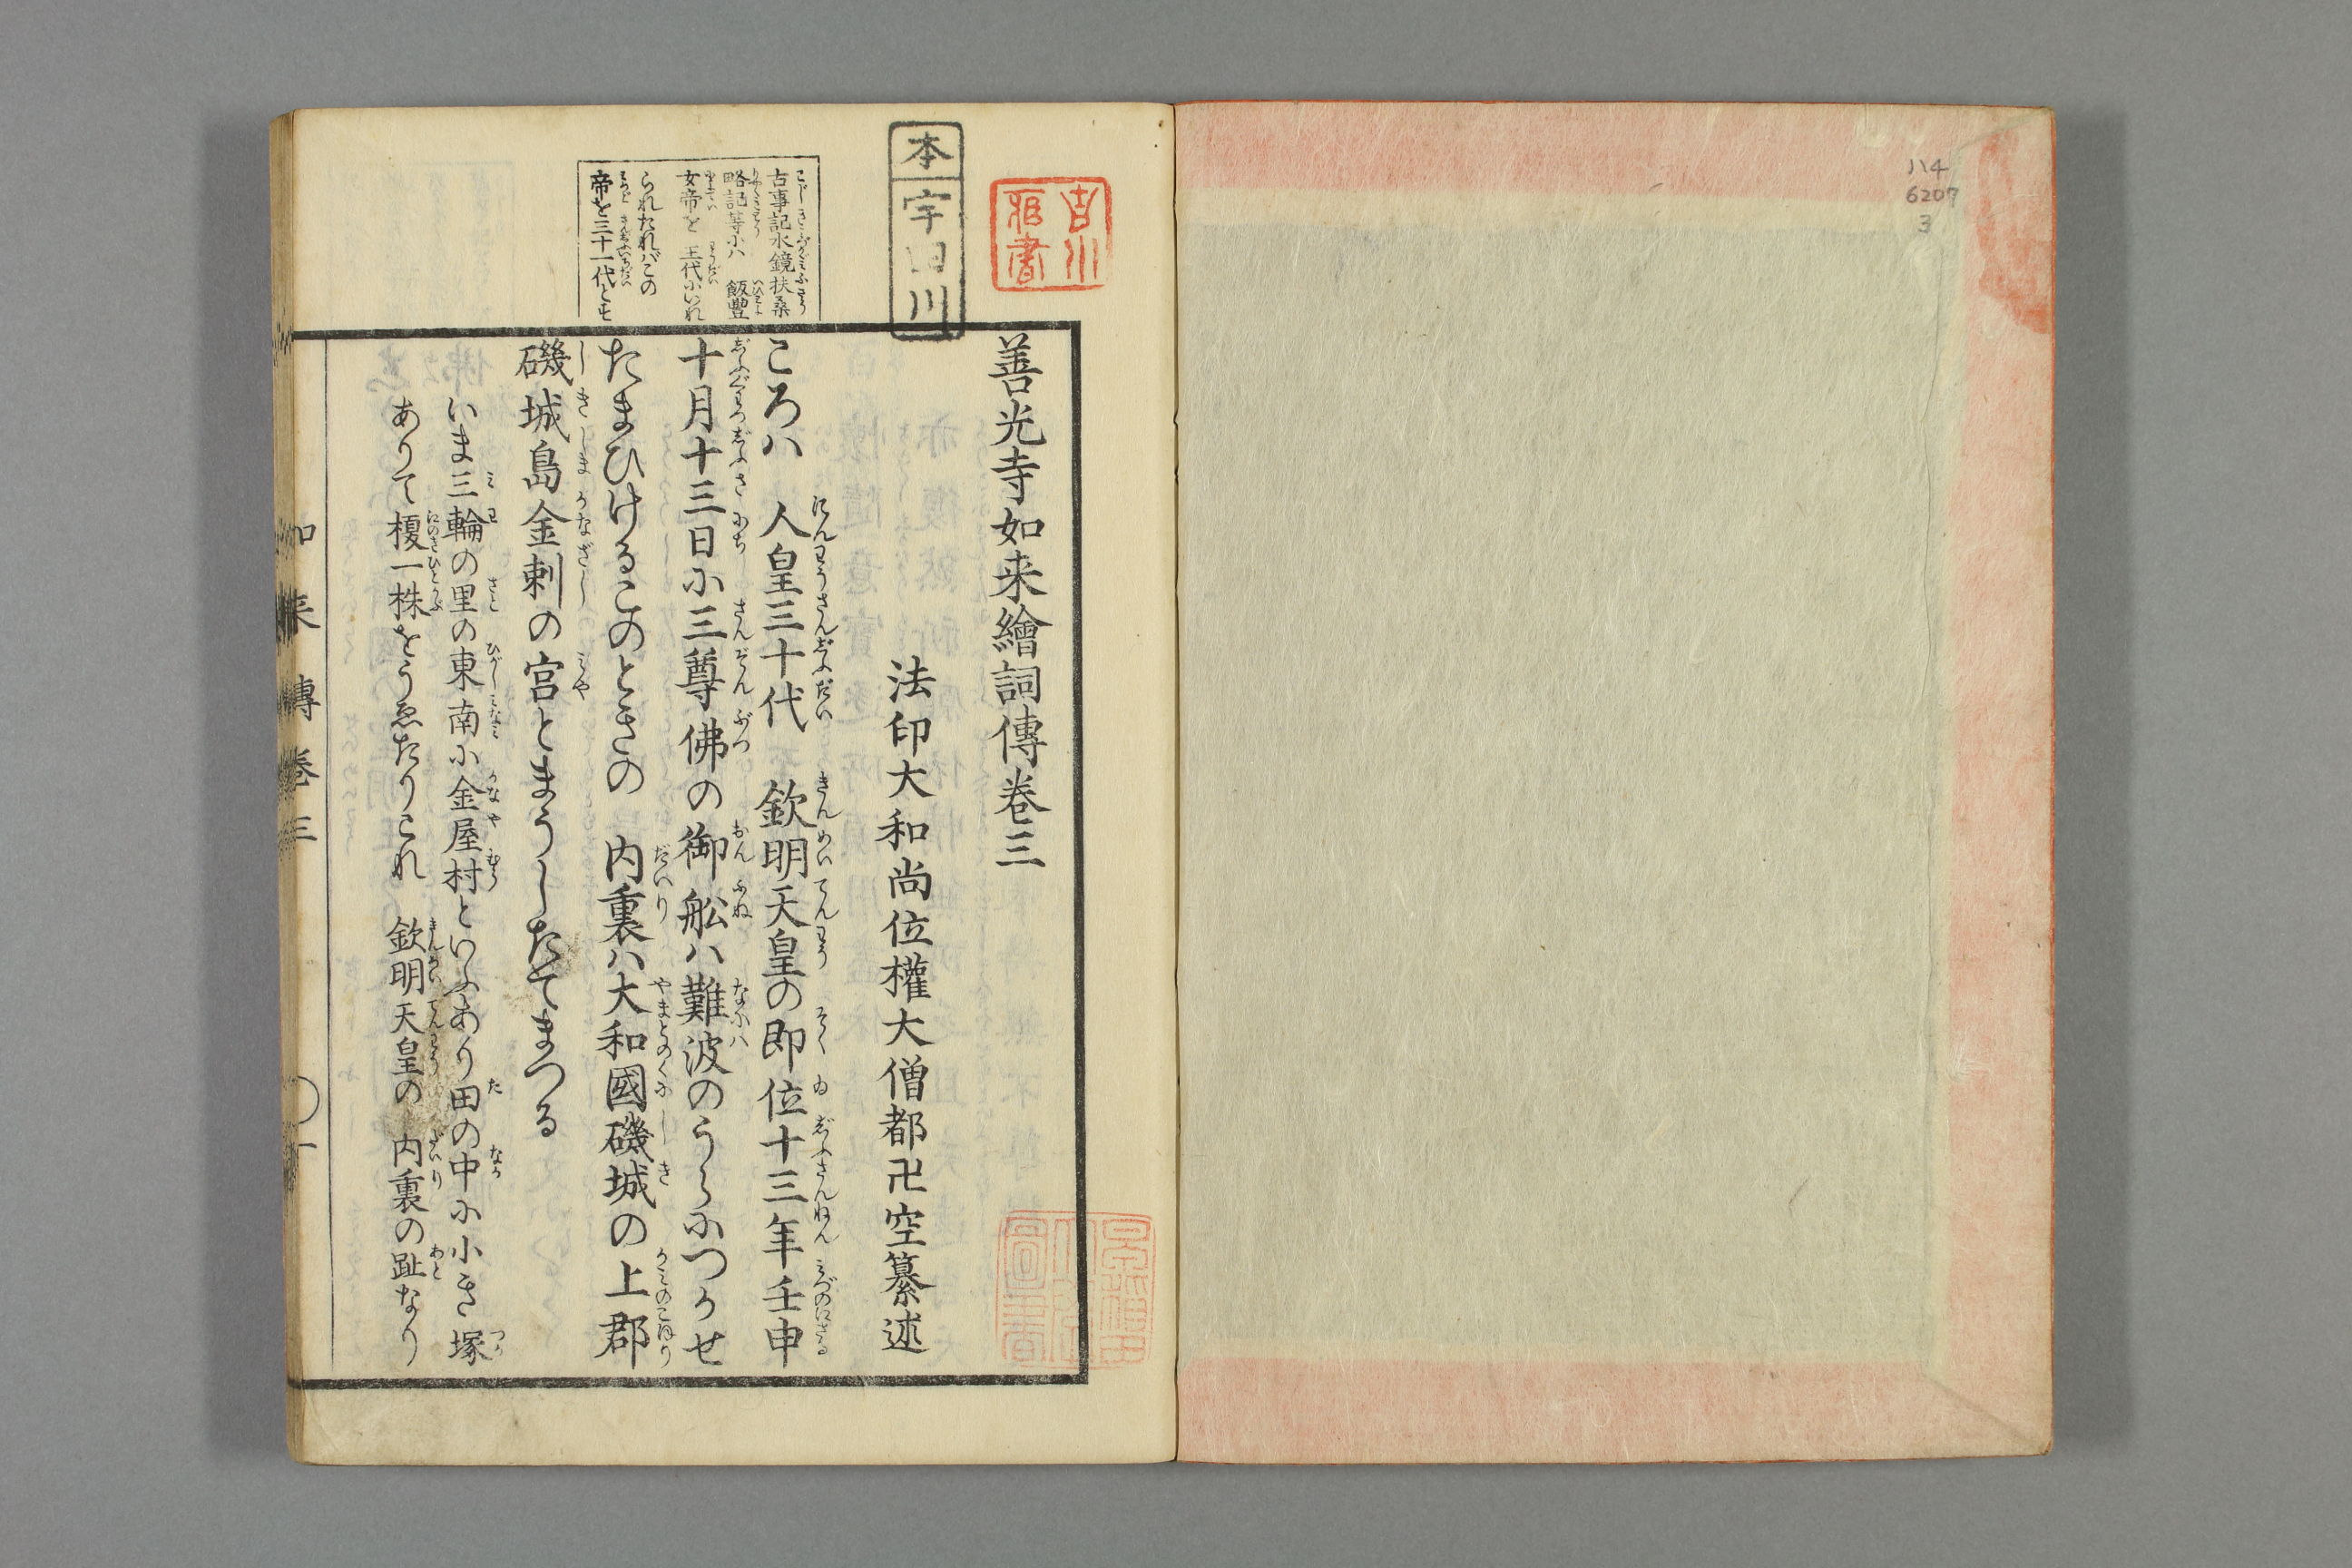 ハ4
6207
3
本
宇田川
善光寺如来繪詞傳巻三
法印大和尚位權大僧都卍空纂述
ころハ　人皇三十代　欽明天皇の即位十三年壬申
十月十三日小三尊佛の御舩ハ難波のうらふつかせ
たまひけるこのときの　内裏ハ大和國磯城の上郡
磯城島金刺の宮とまうしたてまつる
いま三輪の里の東南小金屋村といふあり田の中小小き塚
ありて榎一株をうゑたりこれ　欽明天皇の　内裏の趾なり
古事記水鏡扶桑
略記等小ハ　飯豊
女帝を　王代小いれ
られたれバこの
帝を三十一代とす
如来傳巻三　〇一